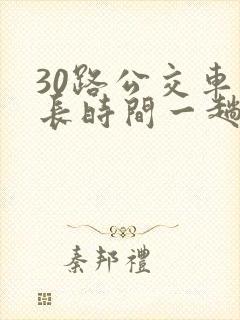 30路公交車
長時間一趟
秦邦禮